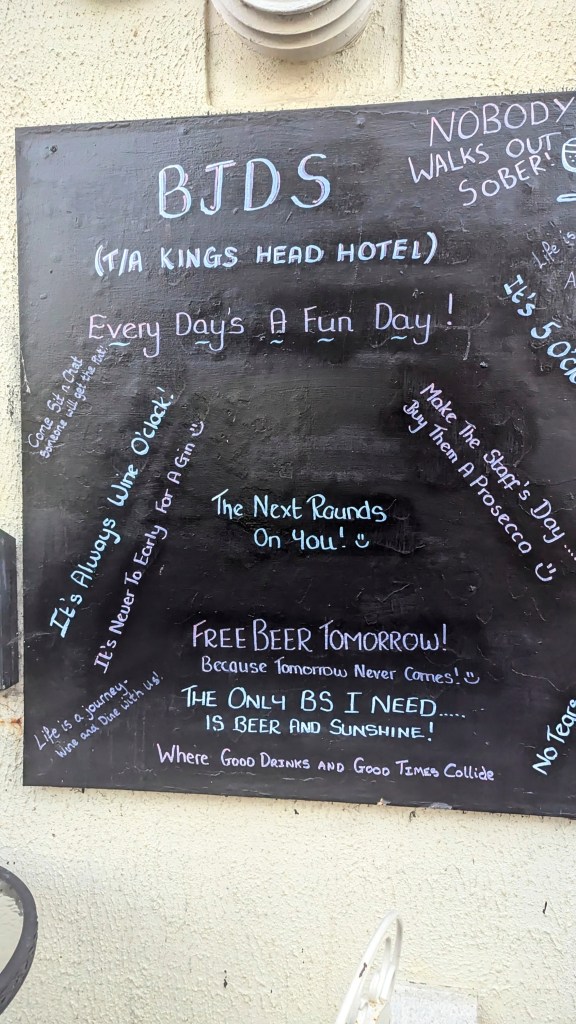 NOBODY
WALKS OUT
SOBER!
BJDS
(T/A KINGS HEAD HOTEL)
Life is
A
It's 5 O'clo
Every Day's A Fun Day!
Come Sit n Chat
someone will get the Pint!
It's Always Wine O'clock!
It's Never To Early For A Gin
Make The Staff's Day ....
Buy Them A Prosecco
The Next Rounds
On You!
FREE BEER TOMORROW!
Because Tomorrow Never Comes!
THE ONLY BS I NEED.....
IS BEER AND SUNSHINE!
Life is a journey-
Wine and Dine with Us!
No Tears
Where Good Drinks and Good Times Collide